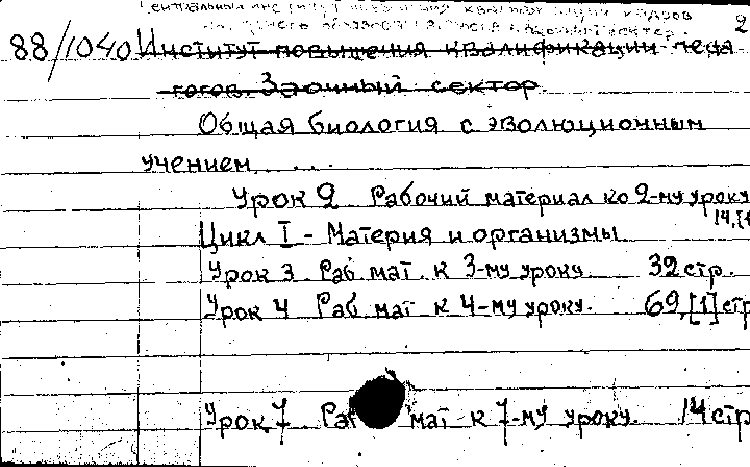 Центральный институт повышения квалификации кадров
2
народного образования. Заочный сектор.
88/1040 Институт повышения квалификации педа
гогов. Заочный сектор
Общая биология с эволюционным
учением....
Урок 2 Рабочий материал ко 2-му уроку
14,[1
Цикл I - Материя и организмы
Урок 3 Раб мат. к 3-му уроку 32 стр.
Урок 4 Раб мат к 4-му уроку. 69,[1] стр
Урок 7 Раб мат к 7-му уроку. 14 стр